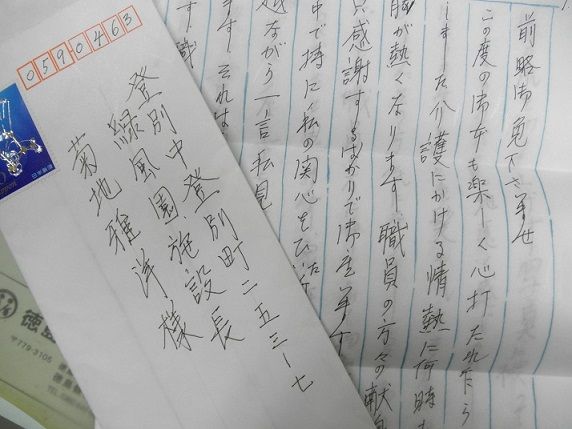 0590463
登別中登別町二五三ー七
緑風園施設長
菊地雅洋様
日本郵便
前略御免下さいませ
この度の御本も楽しく心打たれ乍ら
しました介護にかける情熱に何時も
胸が熱くなります、職員の方々の献身
感謝するばかりで御座います
中で特に私の関心をひいた
乍ら一言私見
ます それは
〒779-3105
TEL